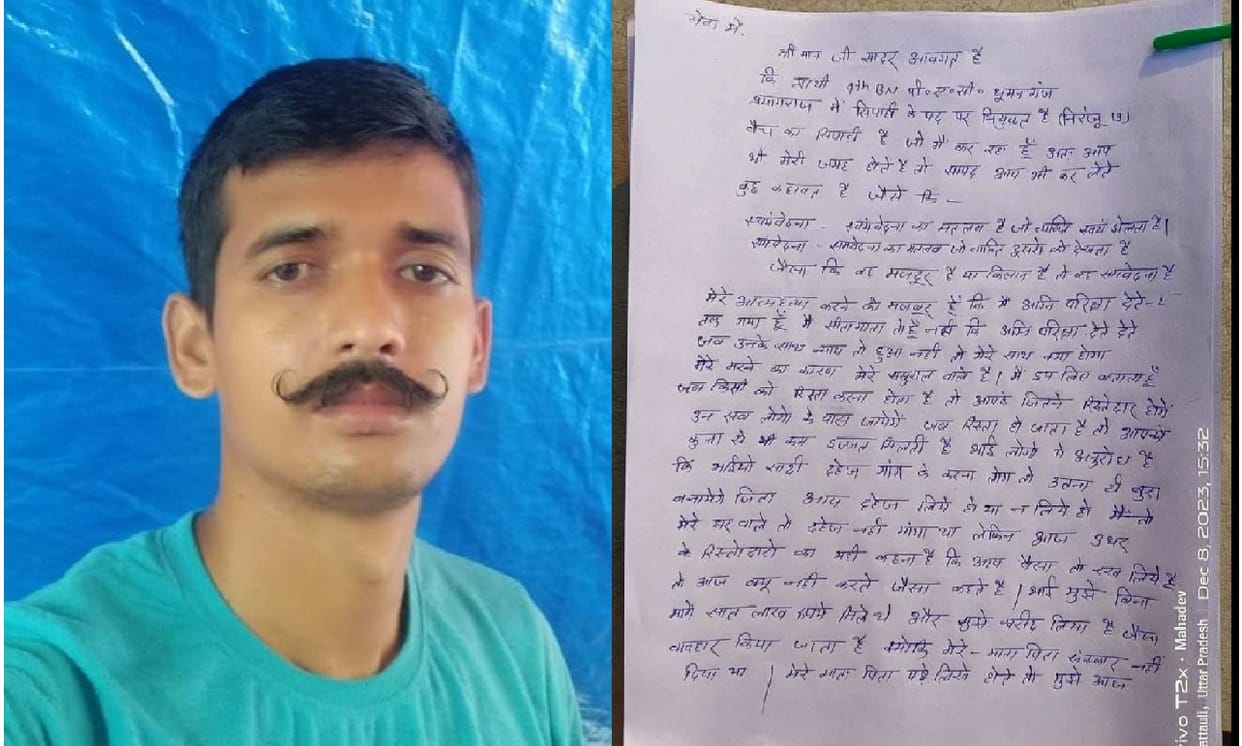 सेवा में,
श्री मान जी सादर अवगत है
कि प्रार्थी BN पी०ए०सी० धूमनगंज
प्रयागराज में सिपाही के पद पर नियुक्त है
बैच का सिपाही है जो मै कर रहा हूँ अतः आप
भी मेरी जगह होते है तो शायद आप भी कर लेते
कुछ कहावत है जैसे कि -
स्वयंवेदना - स्वयंवेदना का मतलब है जो व्यक्ति स्वयं झेलता है।
समवेदना - समवेदना का मतलब जो व्यक्ति दुसरो को देखता है
जैसा कि वह मजदूर है या किसान है तो वह समवेदना है
मेरे आत्महत्या करने को मजबूर हूँ कि मै अग्नि परिक्षा देते-2
थक गया हूँ मै सीता माता तो हूँ नहीं कि अग्नि परिक्षा देते देते
जब उनके साथ न्याय तो हुआ नही तो मेरे साथ क्या होगा
मेरे मरने का कारण मेरे ससुराल वाले है। मैं इस लिए बताता हूँ
जब किसी को रिस्ता करना होता है तो आपके जितने रिस्तेदार होंगे
उन सब लोगो के पास जायेगें जब रिस्ता हो जाता है तो आपको
कुत्ता से भी कम इज्जत मिलती है भाई लोगो से अनुरोध है
कि भाईयो सादी दहेज मांग के करना लोग तो उतना ही बुरा
बतायेगें जितना आप दहेज लिये हो या न लिये हो मै तो
मेरे घर वाले तो दहेज नही मांगा था लेकिन आज उधर
के रिस्तेदारो का यही कहना है कि आप पैसा तो रख लिये है
तो आज क्यू नही करते जैसा कहते है। भाई मुझे बिना
मांगे सात लाख रुपये मिले थे और मुझे खरीद लिया है जैसा
व्यवहार किया जाता है क्योकि मेरे - माता पिता संस्कार नही
दिया था । मेरे माता पिता पढ़े लिखे होते तो मुझे आज
vivo T2x · Mahadev
Uttar Pradesh | Dec 8, 2023, 15:32